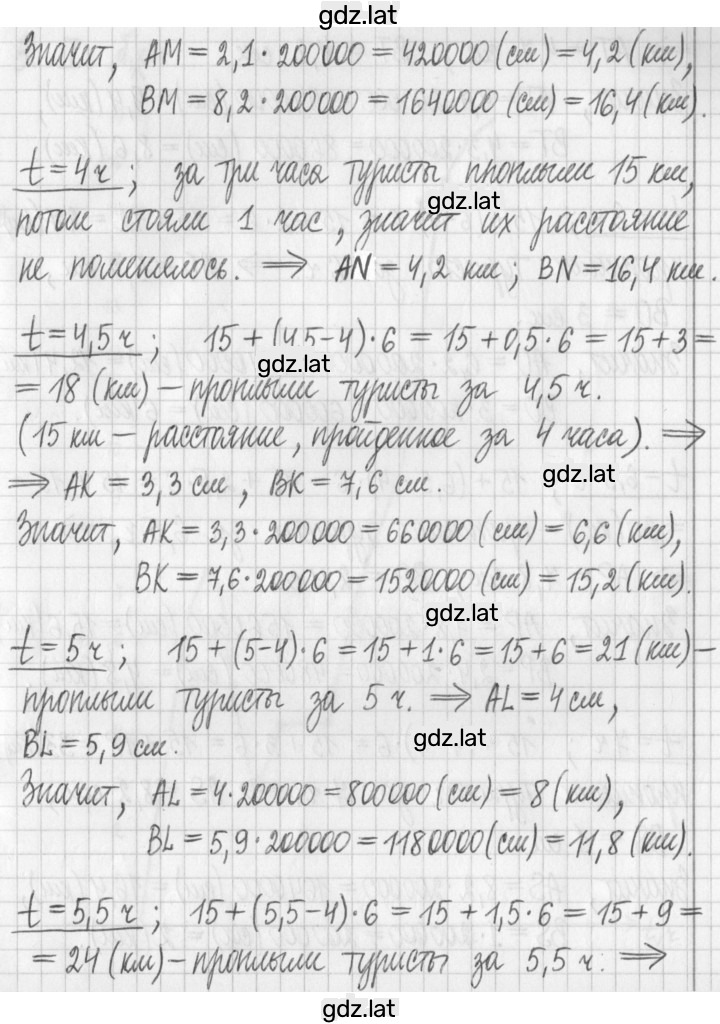 gdz.lat
Значит, AM = 2,1 · 200000 = 420000 (см) = 4,2 (км),
BM = 8,2 · 200000 = 1640000 (см) = 16,4 (км).
t = 4 ч; за три часа туристы проплыли 15 км,
gdz.lat
потом стояли 1 час, значит их расстояние
не поменялось. ⇒ AN = 4,2 км; BN = 16,4 км.
t = 4,5 ч; 15 + (4,5 - 4) · 6 = 15 + 0,5 · 6 = 15 + 3 =
gdz.lat
= 18 (км) – проплыли туристы за 4,5 ч.
(15 км – расстояние, пройденное за 4 часа). ⇒
⇒ AK = 3,3 см, BK = 7,6 см.
gdz.lat
Значит, AK = 3,3 · 200000 = 660000 (см) = 6,6 (км),
BK = 7,6 · 200000 = 1520000 (см) = 15,2 (км).
gdz.lat
t = 5 ч; 15 + (5 - 4) · 6 = 15 + 1 · 6 = 15 + 6 = 21 (км) –
проплыли туристы за 5 ч. ⇒ AL = 4 см,
BL = 5,9 см.
gdz.lat
Значит, AL = 4 · 200000 = 800000 (см) = 8 (км),
BL = 5,9 · 200000 = 1180000 (см) = 11,8 (км).
t = 5,5 ч; 15 + (5,5 - 4) · 6 = 15 + 1,5 · 6 = 15 + 9 =
= 24 (км) – проплыли туристы за 5,5 ч. ⇒
gdz.lat